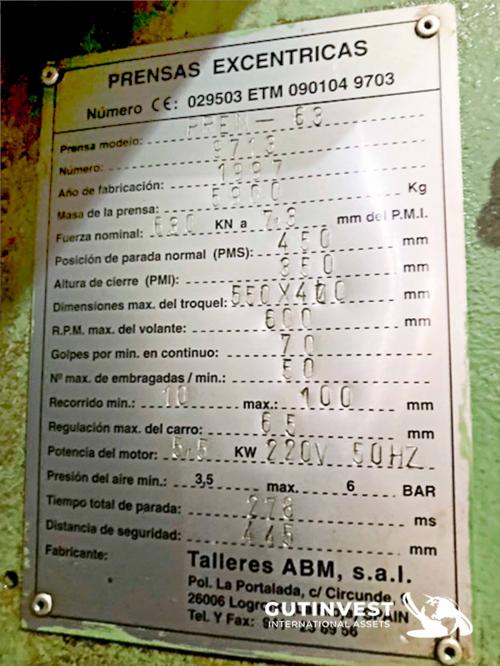 PRENSAS EXCENTRICAS
Número CE: 029503 ETM 090104 9703
Prensa modelo: PPEM-63
Número: 9713
Año de fabricación: 1997
Masa de la prensa: 5900 Kg
Fuerza nominal: 630 KN a 7,3 mm del P.M.I.
Posición de parada normal (PMS): 450 mm
Altura de cierre (PMI): 350 mm
Dimensiones max. del troquel: 550X400 mm
R.P.M. max. del volante: 600 mm
Golpes por min. en continuo: 70
Nº max. de embragadas / min.: 50
Recorrido min.: 10 max.: 100 mm
Regulación max. del carro: 65 mm
Potencia del motor: 5,5 KW 220V 50HZ
Presión del aire min.: 3,5 max. 6 BAR
Tiempo total de parada: 278 ms
Distancia de seguridad: 445 mm
Fabricante: Talleres ABM, s.a.l.
Pol. La Portalada, c/ Circunde,
26006
Tel. Y Fax: 56
GUTINVEST
INTERNATIONAL ASSETS